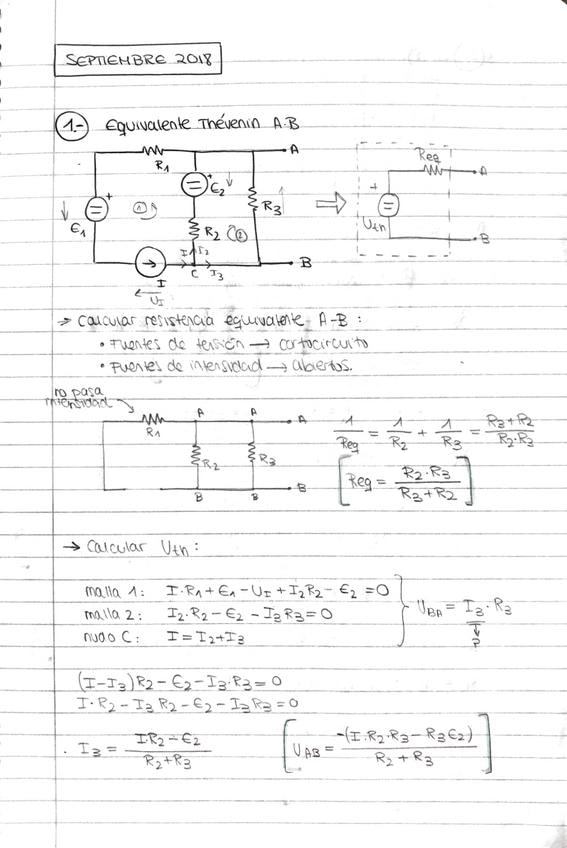 SEPTIEMBRE 2018
1.- Equivalente Thévenin A-B
R1
A
+
+
E1
1
E2
R3
R2
2
I
I2
C
I3
B
I
UI
Req
A
+
Uth
B
→ Calcular resistencia equivalente A-B:
• Fuentes de tensión → cortocircuito
• Fuentes de intensidad → abiertos.
no pasa
intensidad
R1
A
A
A
R2
R3
B
B
B
1/Req = 1/R2 + 1/R3 = R3+R2/R2·R3
[Req = R2·R3/R3+R2]
→ Calcular Uth:
malla 1: I·R1 + Є1 - UI + I2R2 - Є2 = 0
malla 2: I2·R2 - Є2 - I3R3 = 0
nudo C: I = I2 + I3
UBA = I3·R3
?
(I-I3)R2 - Є2 - I3·R3 = 0
I·R2 - I3R2 - Є2 - I3R3 = 0
· I3 = I·R2 - Є2/R2+R3
[UAB = -(I·R2·R3 - R3Є2)/R2+R3]